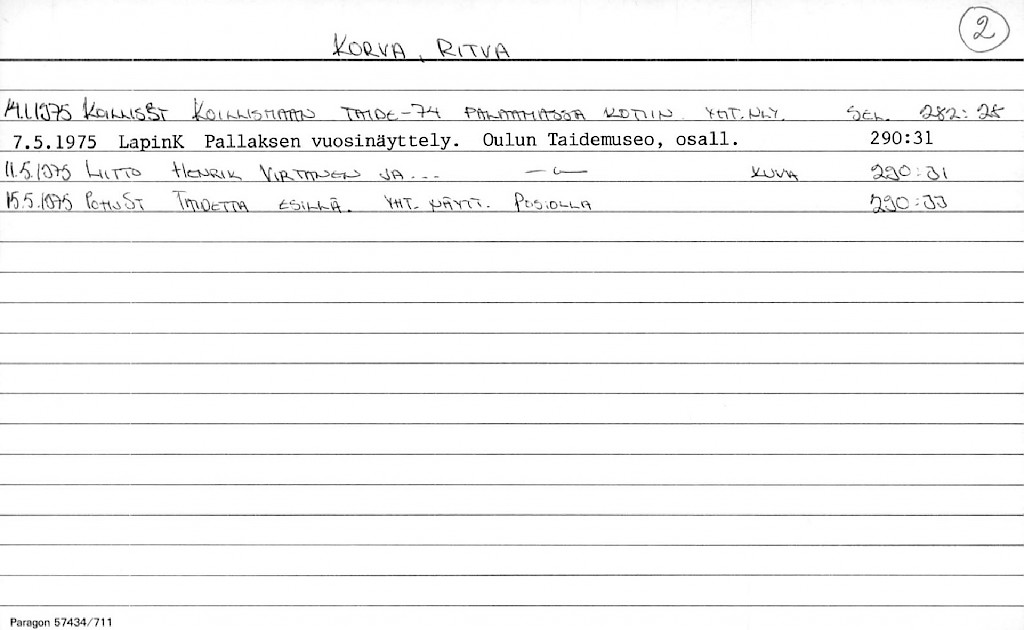 2
KORVA, RITVA
14.1.1975 KOILLISST KOILLISMAAN TAIDE-74 PALAAMASSA KOTIIN YHT.NLY. SEL. 282:28
7.5.1975 LapinK Pallaksen vuosinäyttely. Oulun Taidemuseo, osall. 290:31
11.5.1975 LIITTO HENRIK VIRTANEN JA... —"— KUVA 290:31
15.5.1975 POHJST TAIDETTA ESILLÄ. YHT. NÄYTT. POSIOLLA 290:33
Paragon 57434/711